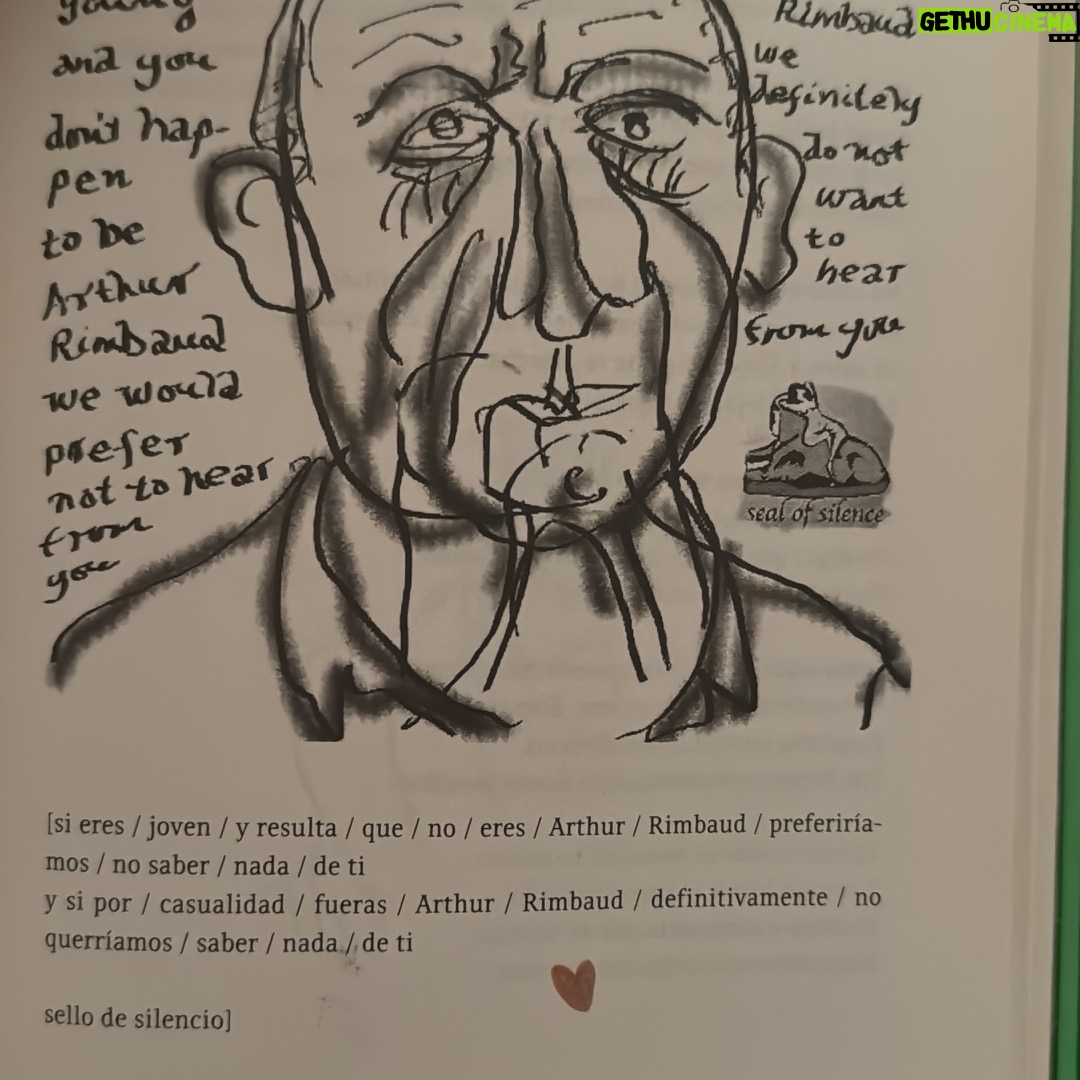 young
and you
don't hap-
pen
to be
Arthur
Rimbaud
we would
prefer
not to hear
from
you
Rimbaud
we
definitely
do not
want
to
hear
from you
seal of silence
GETHUCINEMA
[si eres / joven / y resulta / que / no / eres / Arthur / Rimbaud / preferiría-
mos / no saber / nada / de ti
y si por / casualidad / fueras / Arthur / Rimbaud / definitivamente / no
querríamos / saber / nada / de ti
sello de silencio]